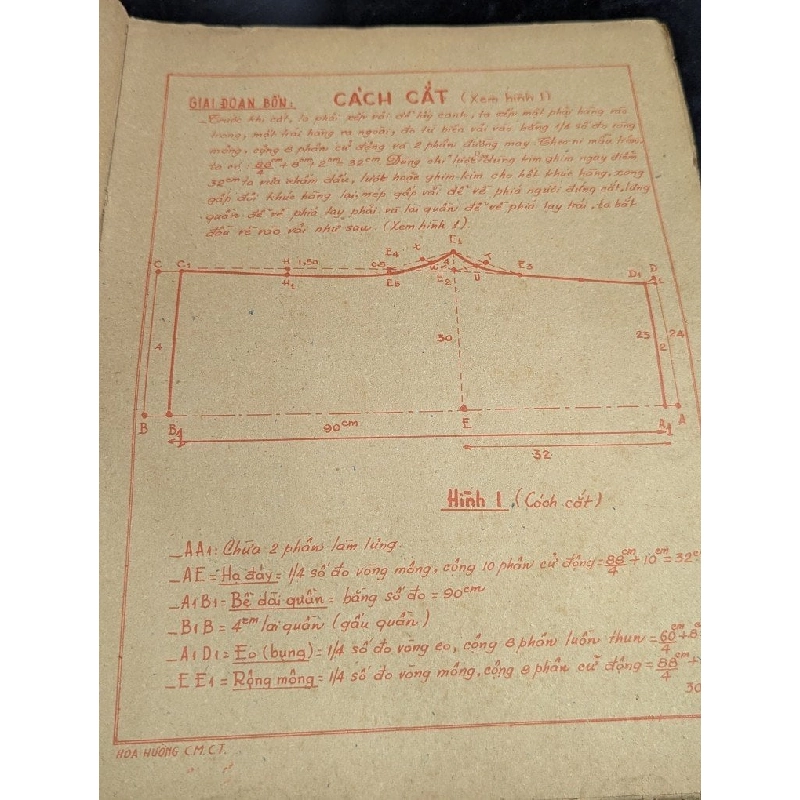 GIAI ĐOẠN BỐN: CÁCH CẮT (Xem hình 1)
_Trước khi cắt, ta phải xén vải để lấy canh, ta xếp mặt phải hàng vào
trong, mặt trái hàng ra ngoài, đo từ biên vải vào bằng 1/4 số đo vòng
mông, cộng 8 phân cử động và 2 phân đường may. Theo ni mẫu trên,
ta có: 88cm/4 + 8cm + 2cm = 32cm Dùng chỉ lược dùng kim ghim ngay điểm
32cm ta vừa nhấm dấu, lược hoặc ghim kim cho hết khúc hàng, xong
gấp đôi khúc hàng lại, mép gấp vải để về phía người đứng cắt, lưng
quần để về phía tay phải và lai quần để về phía tay trái, ta bắt
đầu vẽ vào vải như sau. (Xem hình 1).
C C1 H 1,50 C5 E4 X E1 I E3 D1 D
H1 E5 E2 U
4 30 25 2 24
B B1 E A1 A
90cm
32
Hình 1. (Cách cắt)
_AA1: Chừa 2 phân làm lưng.
_AE = Hạ đáy = 1/4 số đo vòng mông, cộng 10 phân cử động = 88cm/4 + 10cm = 32c
_A1B1 = Bề dài quần = bằng số đo = 90cm
_B1B = 4cm lai quần (gấu quần)
_A1D1 = Eo (bụng) = 1/4 số đo vòng eo, cộng 8 phân luồn thun = 60cm/4 + 8
_EE1 = Rộng mông = 1/4 số đo vòng mông, cộng 8 phân cử động = 88cm/4 +
30
HOA HƯỜNG C.M.C.T.